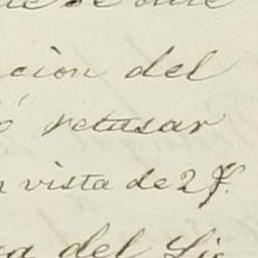 cion del
ó retusar
n vista de 27.
a del Lic